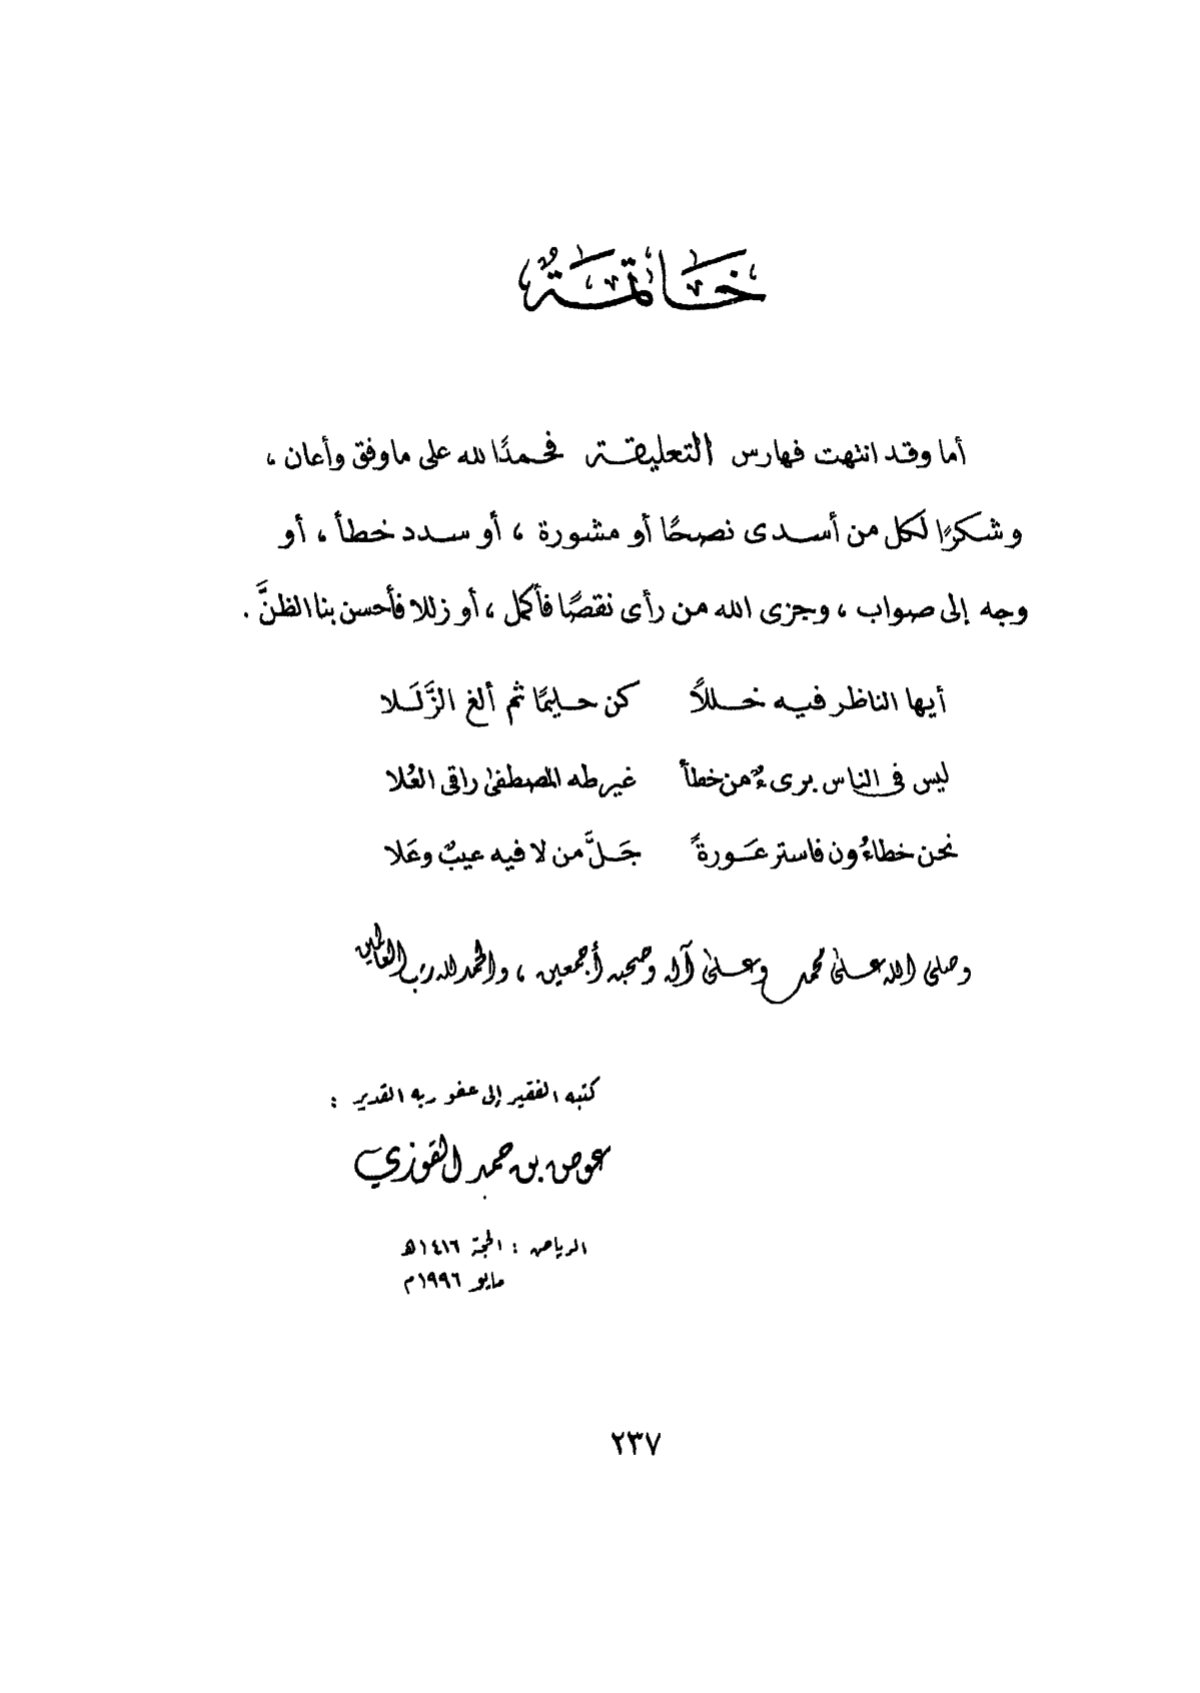 خَاتمَةٌ
أما وقد انتهت فهارس التعليقة فحمدًا لله على ما وفق وأعان ،
وشكرًا لكل من أسدى نصحًا أو مشورة ، أو سدد خطأ ، أو
وجه إلى صواب ، وجزى الله من رأى نقصًا فأكمل ، أو زللا فأحسن بنا الظنَّ .
أيها الناظر فيه خللاً كن حليمًا ثم ألغ الزَّلَلا
ليس في الناس برىءٌ من خطأ غير طه المصطفى راقى العُلا
نحن خطاءُون فاستر عَورةً جَلَّ من لا فيه عيبٌ وعَلا
وصلى الله على محمد وعلى آله وصحبه أجمعين ، والحمد لله رب العالمين
كتبه الفقير إلى عفو ربه القدير :
عوض بن حمد القوزي
الرياض : الحجة ١٤١٦هـ
مايو ١٩٩٦م
٢٣٧